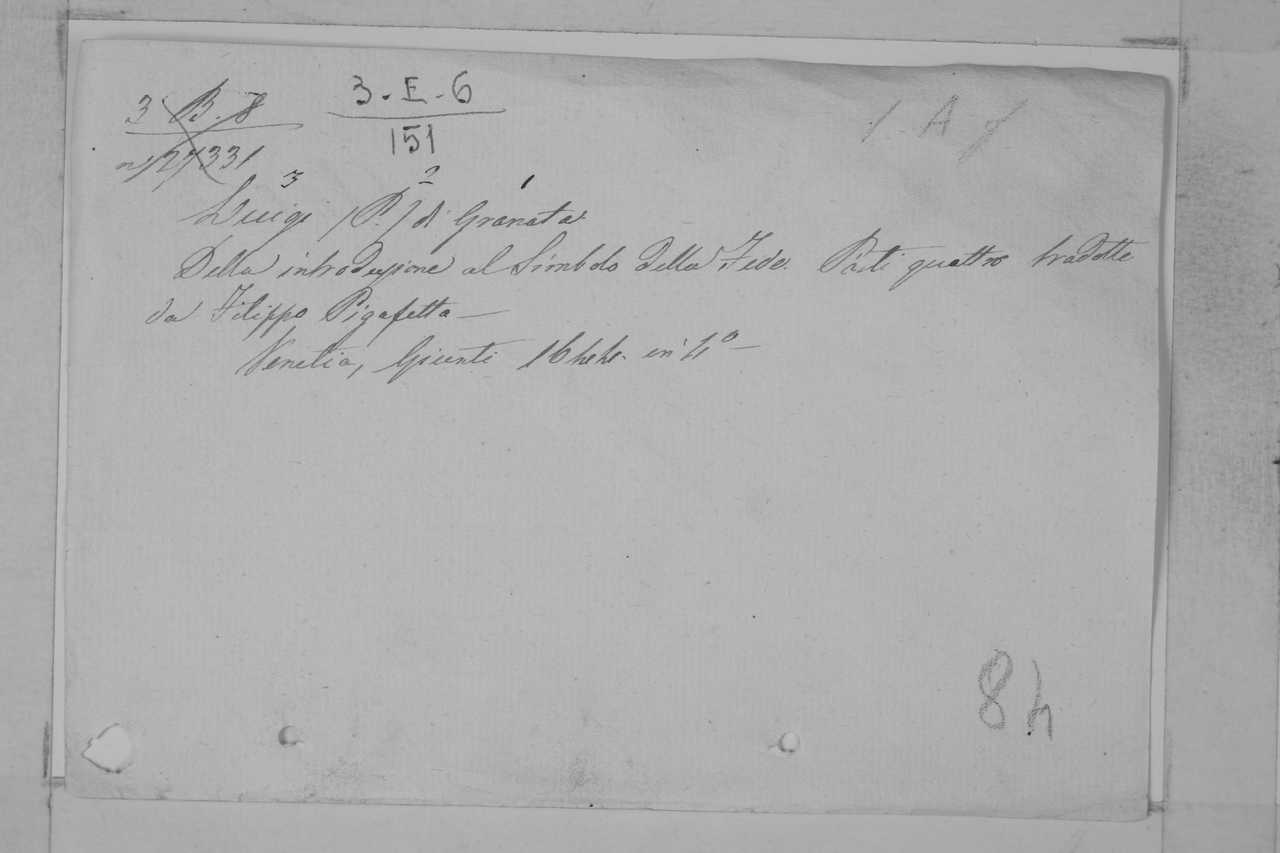 3 B. 8
3-E-6
n, 27331
151
1 A f
3 2 1
Luigi (P.) di Granata
Della introduzione al Simbolo della Fede. Parti quattro tradotte
da Filippo Pigafetta —
Venetia, Giunti 1644. in 4º —
84